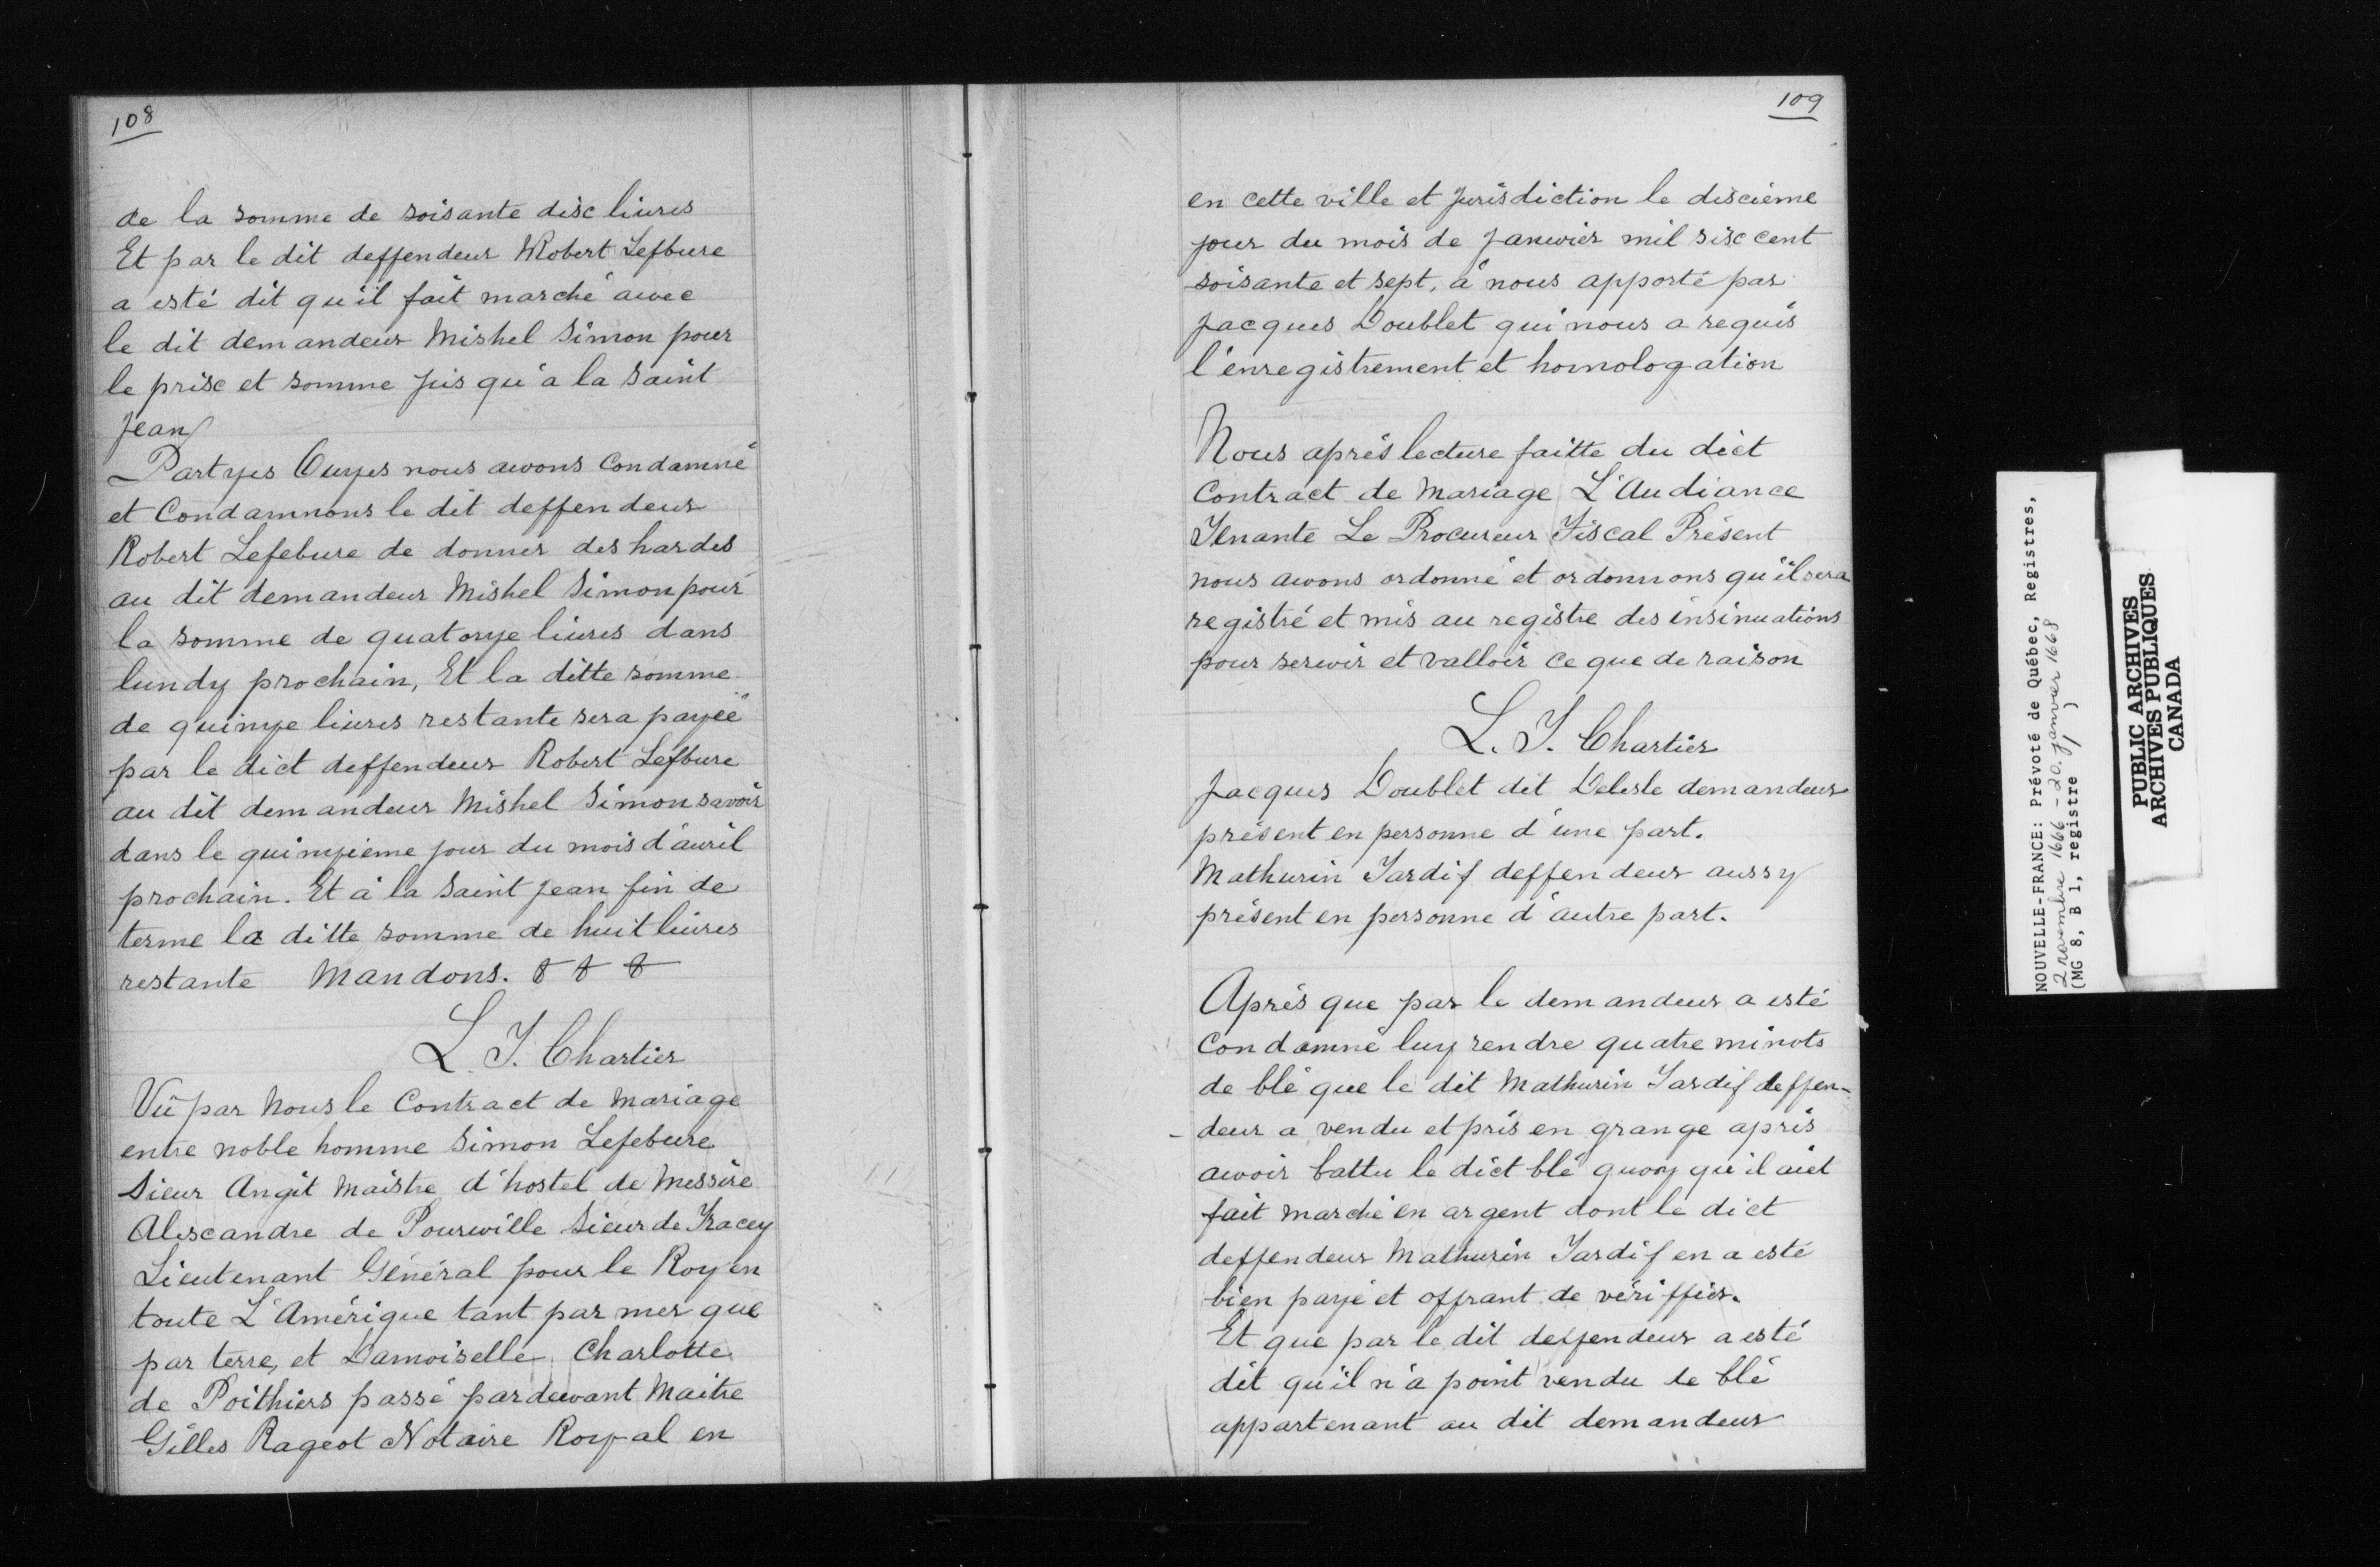 108
de la somme de soisante disc liures
Et par le dit deffendeur Robert Lefbure
a esté dit qu'il fait marché awec
le dit demandeur Mishel Simon pour
le prisc et somme jusqu'a la Saint
Jean
Partyes Ouyes nous awons Condamné
et Condamnons le dit deffendeur
Robert Lefebure de donner des hardes
au dit demandeur Mishel Simon pour
la somme de quatorze liures dans
lundy prochain, Et la ditte somme
de quinze liures restante sera payée
par le dict deffendeur Robert Lefbure
au dit demandeur Mishel Simon savoir
dans le quinzieme jour du mois d'auril
prochain. Et à la Saint Jean fin de
terme la ditte somme de huit liures
restante Mandons.
L. T. Chartier
Vü par Nous le Contract de Mariage
entre noble homme Simon Lefebure
Sieur Angit Maistre d'hostel de Messire
Alescandre de Pourwille Sieur de Tracey
Lieutenant Général pour le Roy en
toute L'Amérique tant par mer que
par terre, et Damoiselle Charlotte
de Poithiers passé pardewant Maitre
Gilles Rageot Notaire Royal en
109
en cette ville et Jurisdiction le discième
jour du mois de Januier mil sisc cent
soisante et sept, à nous apporté par
Jacques Doublet qui nous a requis
l'enregistrement et homologation
Nous après lecture faitte du dict
Contract de Mariage L'Audiance
Tenante Le Procureur Fiscal Présent
nous awons ordonné et ordonnons qu'il sera
registré et mis au registre des insinuations
pour serwir et valloir ce que de raison
L. T. Chartier
Jacques Doublet dit Delesle demandeur
présent en personne d'une part.
Mathurin Tardif deffendeur aussy
présent en personne d'autre part.
Après que par le demandeur a esté
Condamné luy rendre quatre minots
de blé que le dit Mathurin Tardif deffen-
deur a vendu et pris en grange après
awoir battu le dict blé quoy qu'il aiet
fait marché en argent dont le dict
deffendeur Mathurin Tardif en a esté
bien payé et offrant de vériffier.
Et que par le dit deffendeur a esté
dit qu'il n'a point vendu le blé
appartenant au dit demandeur
NOUVELLE-FRANCE: Prévoté de Québec, Registres,
2 novembre 1666 - 20 janvier 1668
(MG 8, B 1, registre 1)
PUBLIC ARCHIVES
ARCHIVES PUBLIQUES
CANADA